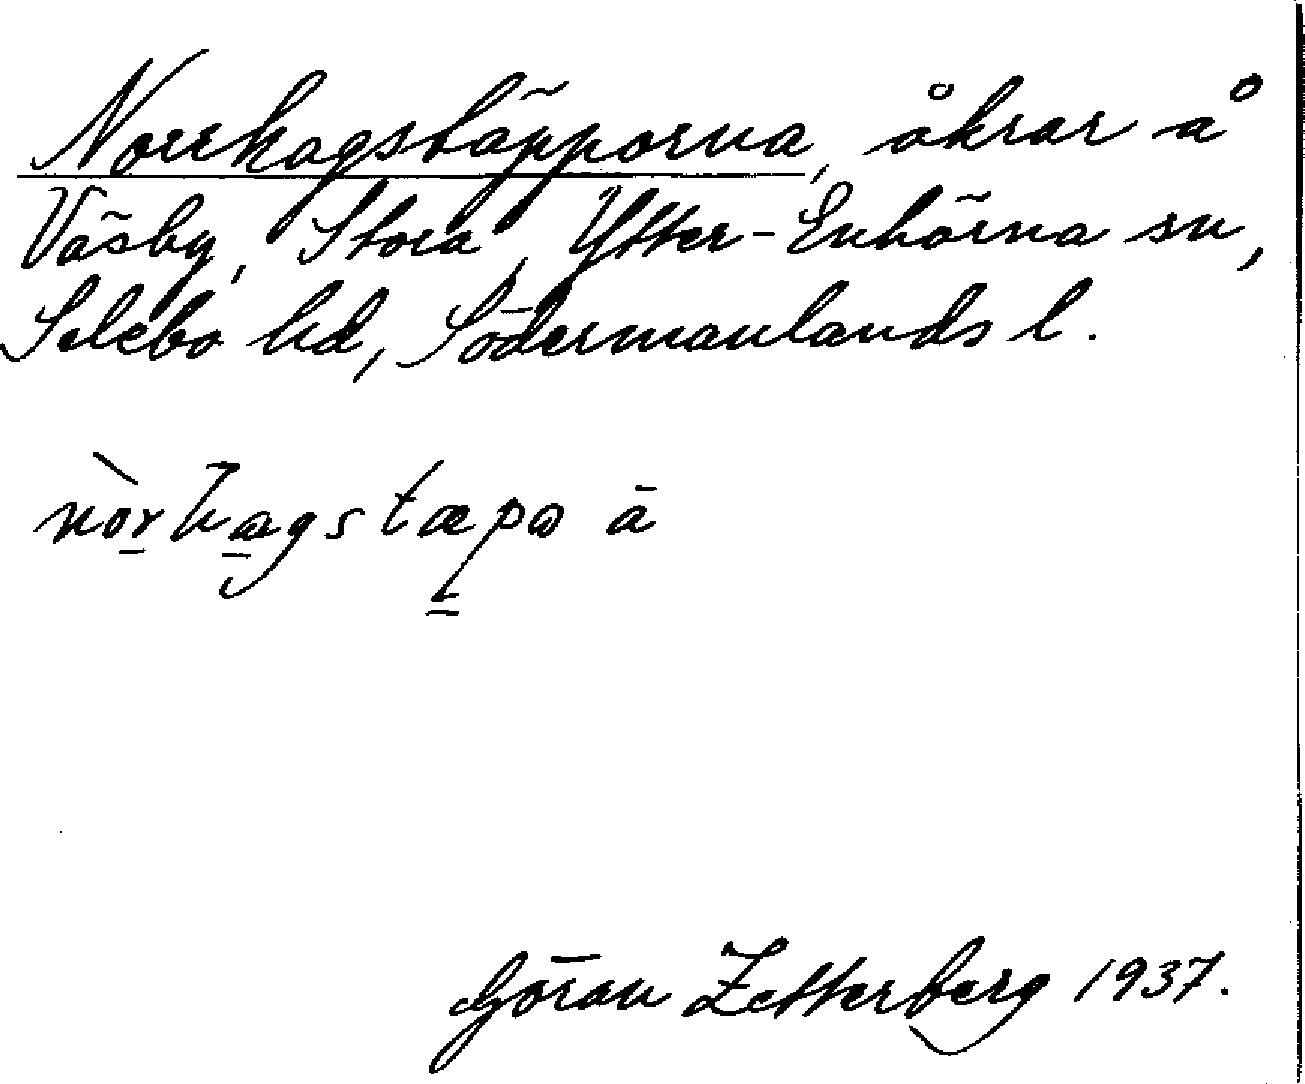 Norrhagstäpporna, åkrar å
Väsby, Stora, Ytter-Enhörna sn,
Selebo hd, Södermanlands l.
nòrhagstæpα ā
Göran Zetterberg 1937.